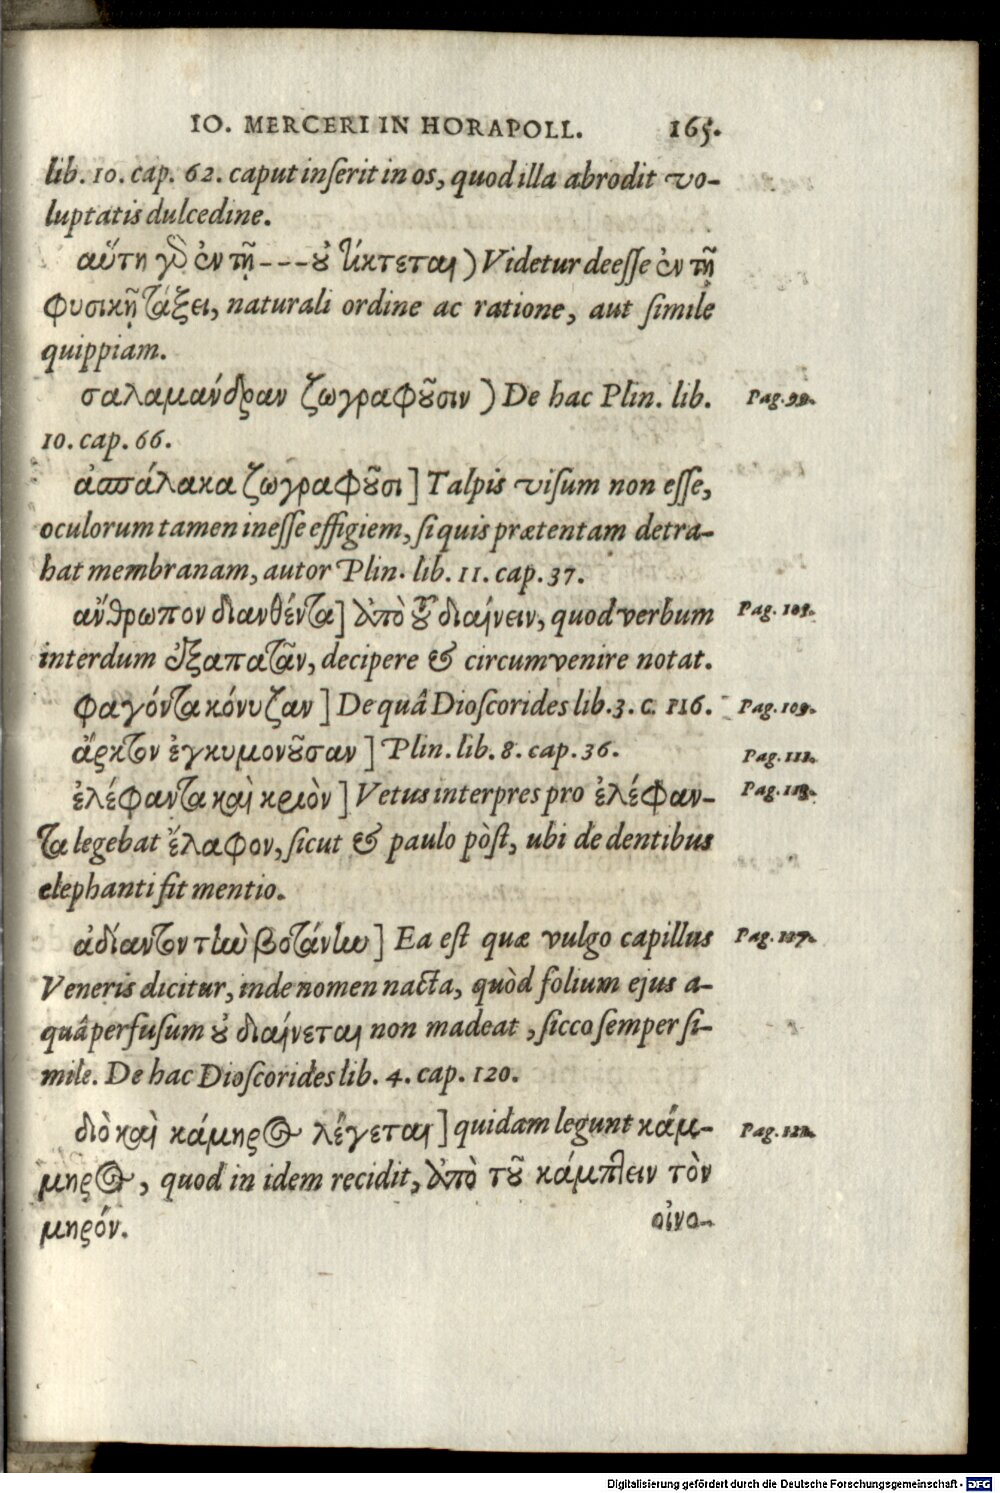 IO. MERCERI IN HORAPOLL. 165.
lib. 10. cap. 62. caput inſerit in os, quod illa abrodit vo-
luptatis dulcedine.
αὕτη γὸ ἐν τῇ---ȣ̓ τίκτεται) Videtur deeſſe ἐν τῇ
φυσικῇ τάξει, naturali ordine ac ratione, aut ſimile
quippiam.
σαλαμάνδραν ζωγραφȣ͂σιν) De hac Plin. lib. Pag. 99.
10. cap. 66.
ἀσπάλακα ζωγραφȣ͂σι] Talpis viſum non eſſe,
oculorum tamen ineſſe effigiem, ſi quis prætentam detra-
hat membranam, autor Plin. lib. 11. cap. 37.
ἄνθρωπον διανθέντα] ἀπὸ τȣ͂ διαίνειν, quod verbum
interdum ἐξαπατᾶν, decipere & circumvenire notat.
φαγόντα κόνυζαν] De quâ Dioſcorides lib. 3. c. 116. Pag. 109.
ἄρκτον ἐγκυμονȣ͂σαν] Plin. lib. 8. cap. 36.
ἐλέφαντα καὶ κριὸν] Vetus interpres pro ἐλέφαν-
τα legebat ἔλαφον, ſicut & paulo pòſt, ubi de dentibus
elephanti fit mentio.
ἀδίαντον τὴν βοτάνην] Ea eſt quæ vulgo capillus
Veneris dicitur, inde nomen nacta, quòd folium ejus a-
quâ perfuſum ȣ̓ διαίνεται non madeat, ſicco ſemper ſi-
mile. De hac Dioſcorides lib. 4. cap. 120.
διὸ καὶ κάμηρος λέγεται] quidam legunt κάμ-
μηρος, quod in idem recidit, ἀπὸ τȣ͂ κάμπτειν τὸν
μηρόν. οἰνο-
Digitalisierung gefördert durch die Deutsche Forschungsgemeinschaft - DFG